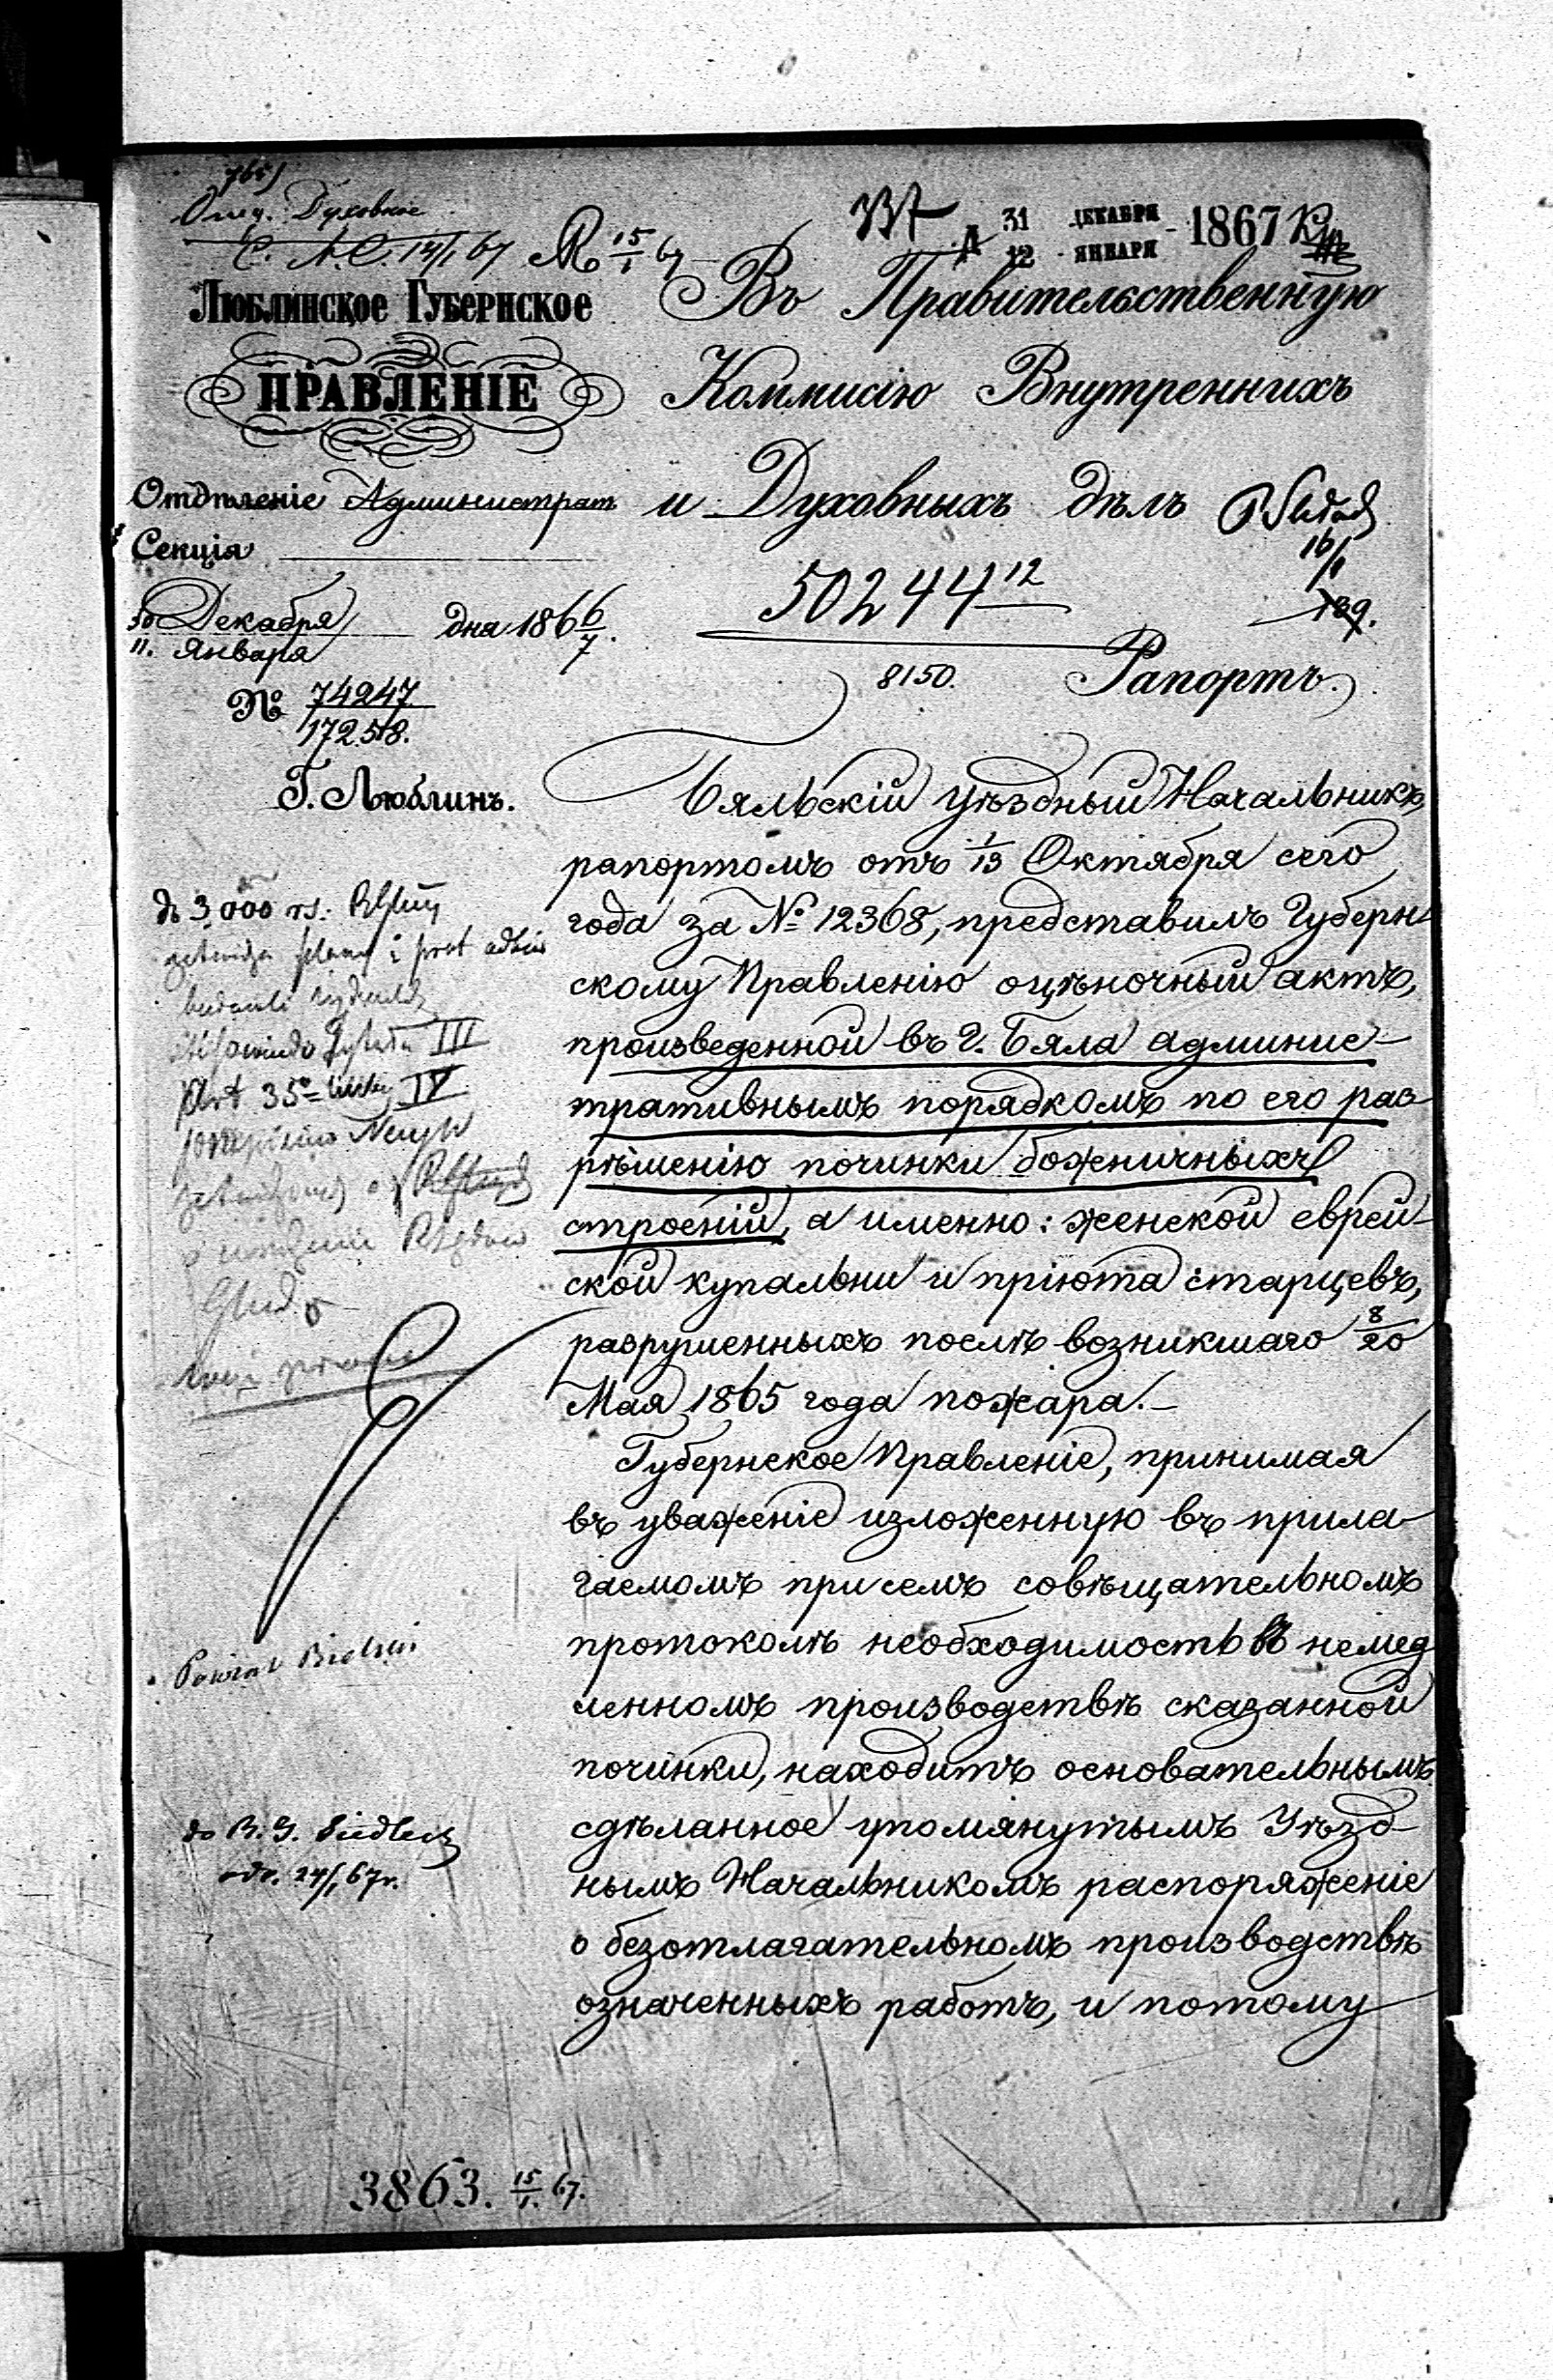 765
Духовное
337
31 ДЕКАБРЯ
12 ЯНВАРЯ - 1867
14/1 67 15/1 67
ЛЮБЛИНСКОЕ ГУБЕРНСКОЕ
ПРАВЛЕНІЕ
Отдѣленіе Администрат
Секція
30 Декабря
11. Января дня 1866/7.
№ 74247
172518.
Г. Люблинъ.
Въ Правительственную
Коммисію Внутреннихъ
и Духовныхъ дѣлъ
16/1
139.
50244 12
8150.
Рапортъ.
Бяльскій Уѣздный Начальникъ,
рапортомъ отъ 1/13 Октября сего
года за № 12368, представилъ Губерн-
скому Правленію оцѣночный актъ,
произведенной въ г. Бяла админис-
тративнымъ порядкомъ по его раз-
рѣшенію починки божничныхъ
строеній, а именно: женской еврей-
ской купальни и пріюта старцевъ,
разрушенныхъ послѣ возникшаго 8/20
Мая 1865 года пожара.-
Губернское Правленіе, принимая
въ уваженіе изложенную въ прила-
гаемомъ при семъ совѣщательномъ
протоколѣ необходимость въ немед
ленномъ производствѣ сказанной
починки, находитъ основательнымъ
сдѣланное упомянутымъ Уѣзд-
нымъ Начальникомъ распоряженіе
о безотлагательномъ производствѣ
означенныхъ работъ, и потому
do 3,000 rs.
III
35 IV
Powiat Bielski
do R. G. Siedleck
odr. 24/1 67r.
3863. 15/1. 67.